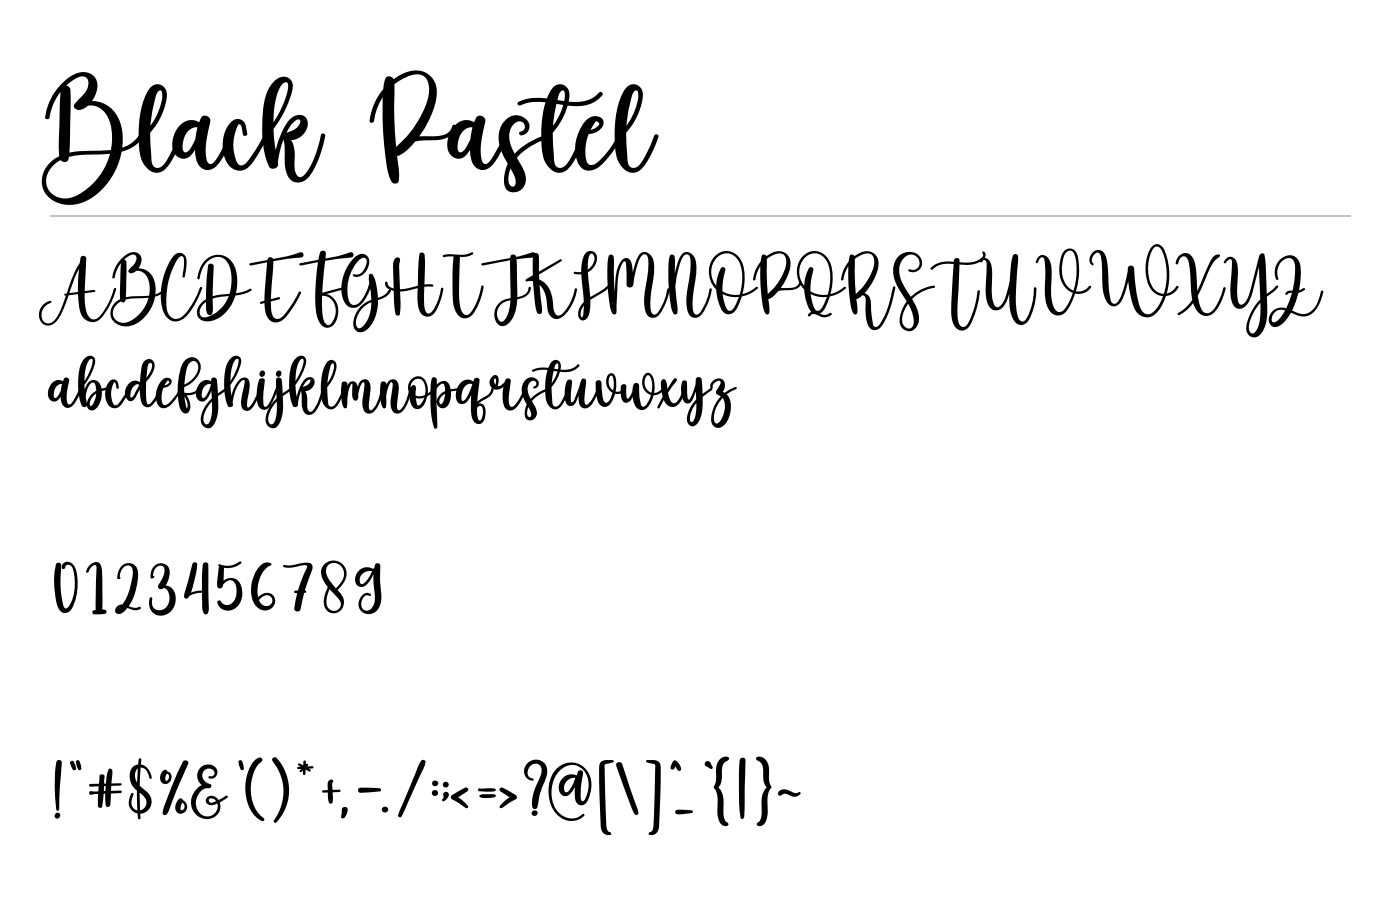 Black Pastel
ABCDEFGHIJKLMNOPQRSTUVWXYZ
abcdefghijklmnopqrstuvwxyz
0123456789
!"#$%&'()*+,-./:;<=>?@[\]^_`{|}~